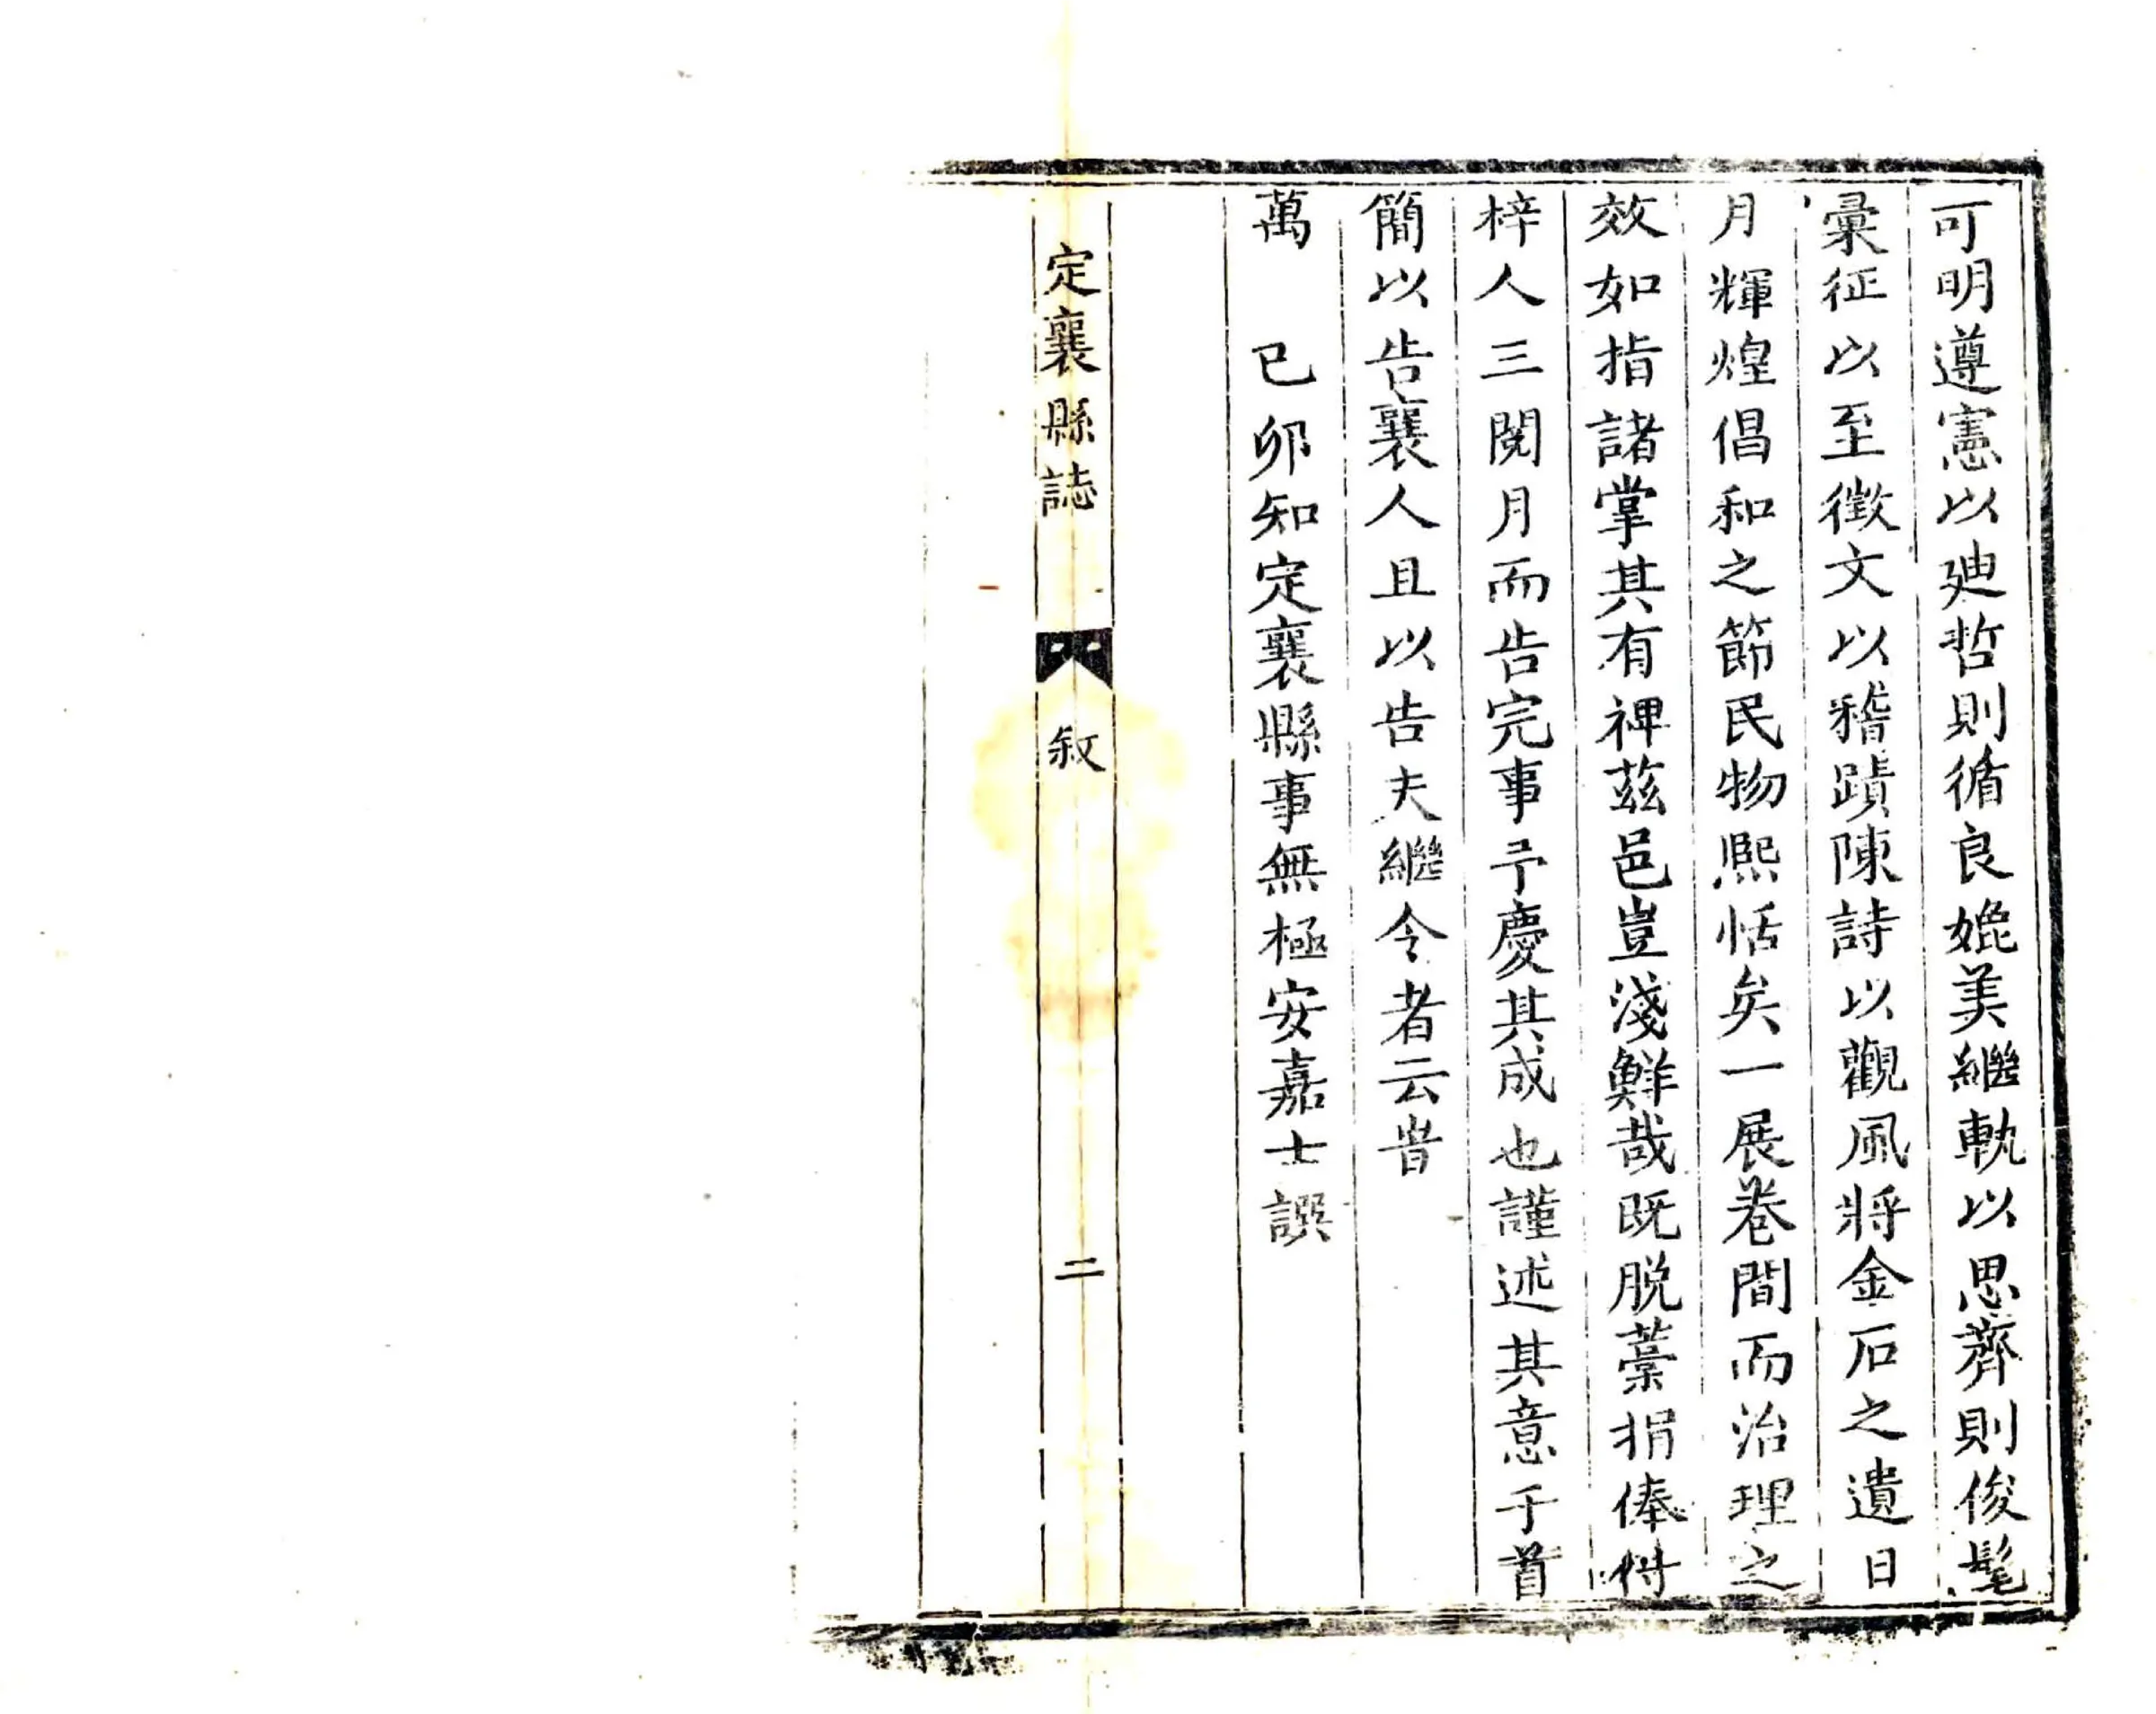 可明遵憲以廸哲則循良媲美繼軌以思齊則俊髦
彙征以至徵文以稽蹟陳詩以觀風將金石之遺日
月輝煌倡和之節民物熈恬矣一展卷間而治理之
效如指諸掌其有裨茲邑豈淺鮮哉既脫藁捐俸付
梓人三閱月而告完事予慶其成也謹述其意于首
簡以告襄人且以告夫繼令者云旹
萬 已卯知定襄縣事無極安嘉士譔
定襄縣誌 敘 二